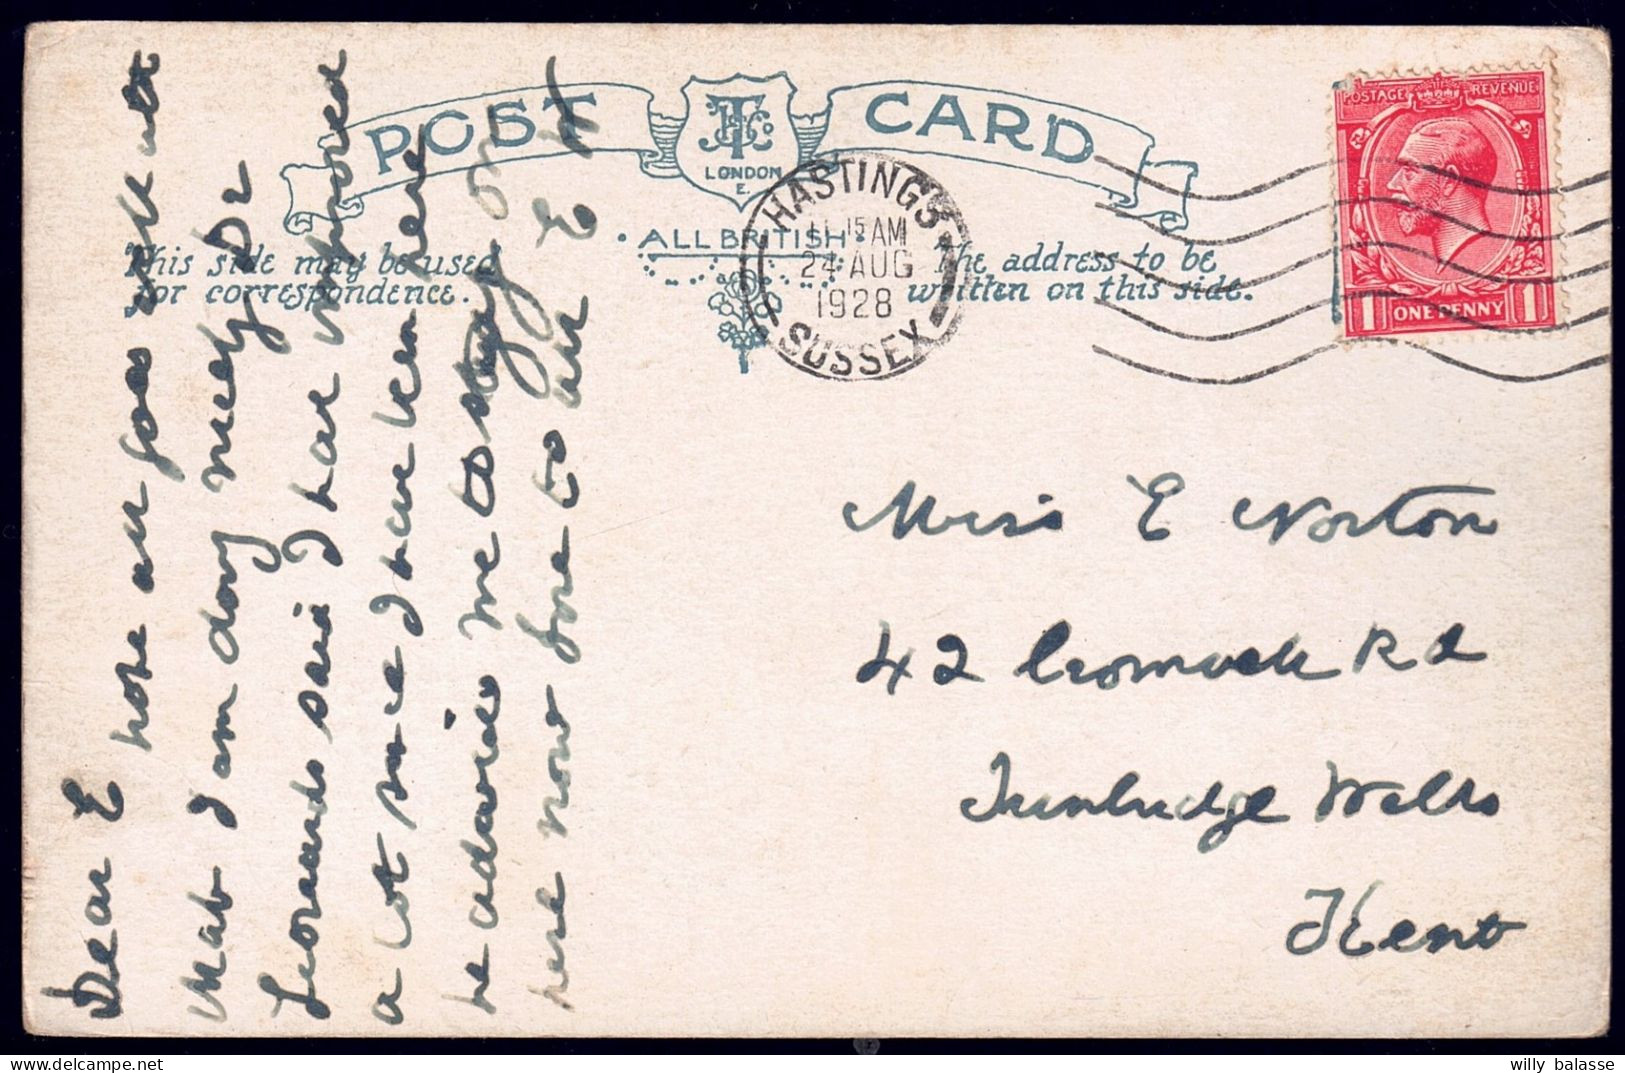 POST CARD
JTSC
LONDON
E.
ALL BRITISH
This side may be used
for correspondence.
The address to be
written on this side.
HASTINGS
11.15 AM
24 AUG
1928
SUSSEX
POSTAGE REVENUE
1 ONE PENNY 1
Dear E hope all goes well with
Mab I am doing nicely Dr
Leonards said I have improved
a lot since I have been here
he advises me to stay on
here now love to all E N
Miss E Norton
42 Rd
Tunbridge Wells
Kent
willy balasse